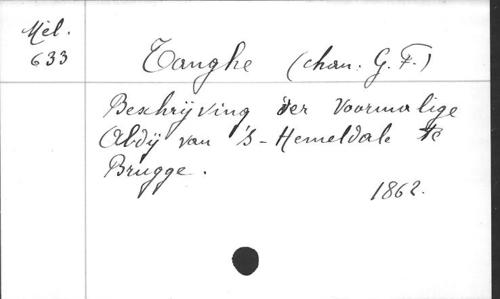 Mél.
633
Tanghe (chan: G. F.)
Beschrijving der voormalige
Abdij van 's-Hemeldale te
Brugge.
1862.